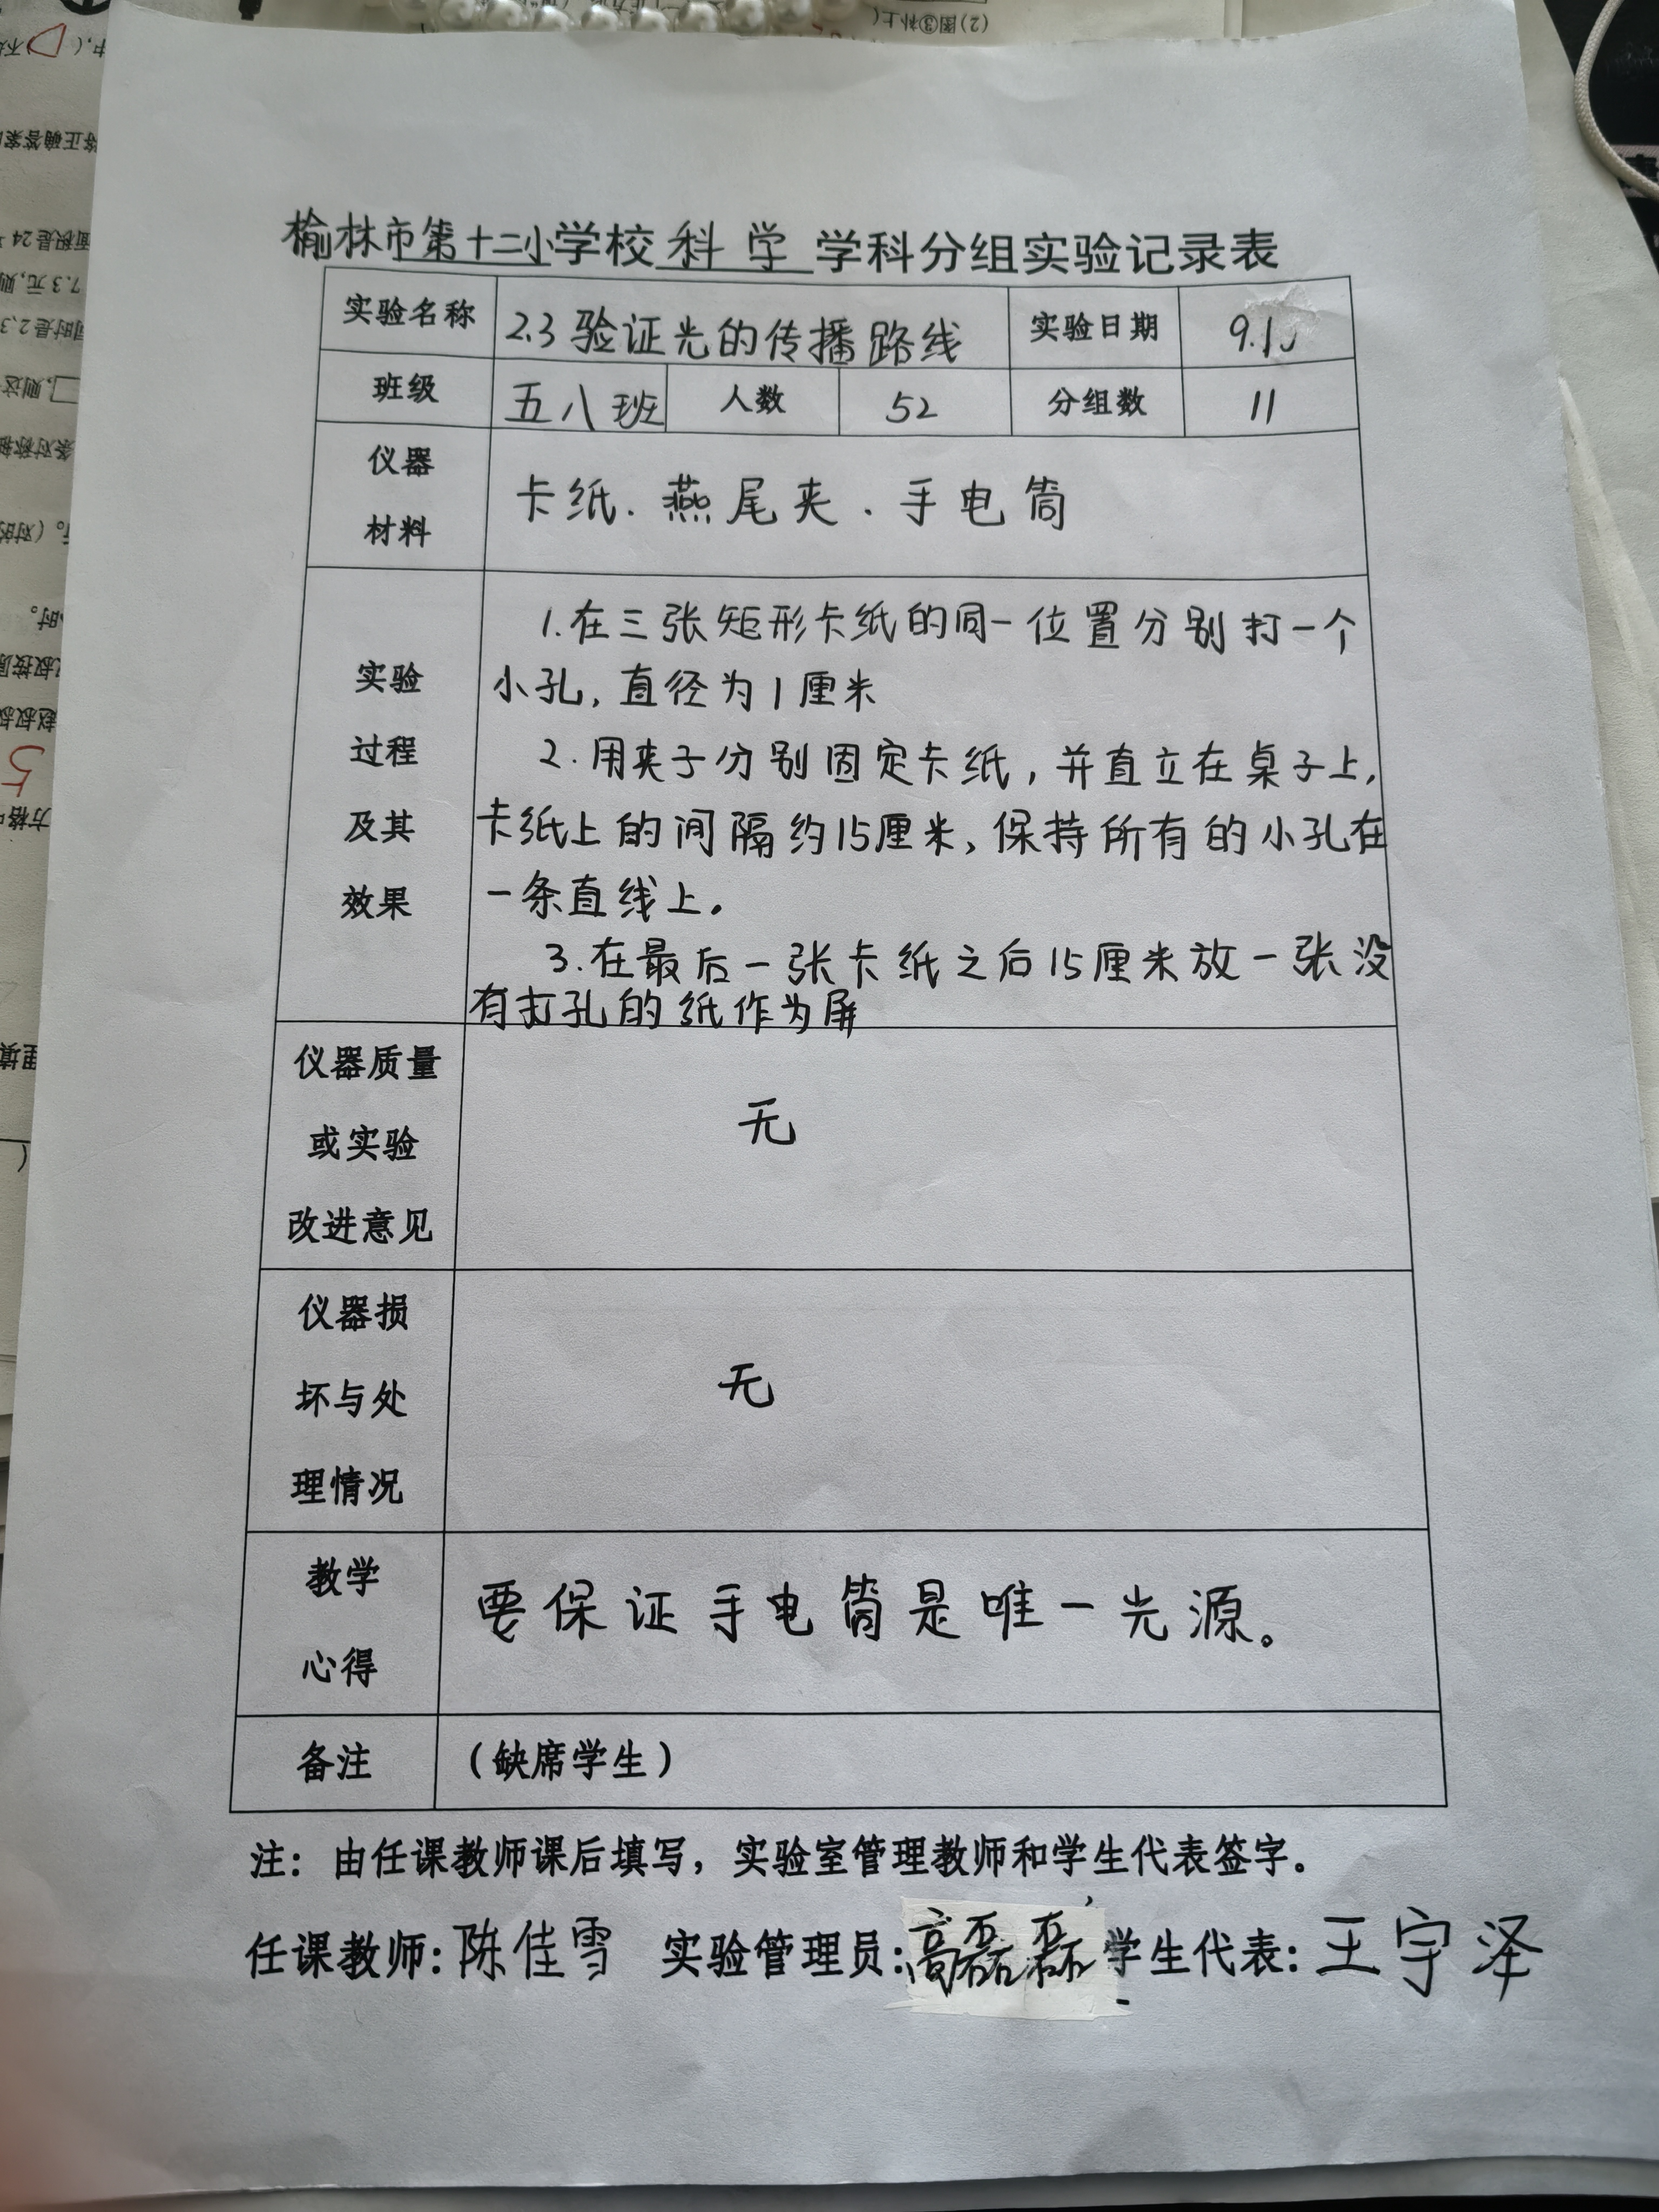 榆林市第十二小学校科学学科分组实验记录表
实验名称 2.3验证光的传播路线 实验日期
班级 五八班 人数 52 分组数 11
仪器
材料
卡纸、燕尾夹、手电筒
实验
过程
及其
效果
1.在三张矩形卡纸的同一位置分别打一个
小孔,直径为1厘米
2.用夹子分别固定卡纸,并直立在桌子上,
卡纸上的间隔约15厘米,保持所有的小孔在
一条直线上。
3.在最后一张卡纸之后15厘米放一张没
有打孔的纸作为屏
仪器质量
或实验
改进意见
无
仪器损
坏与处
理情况
无
教学
心得
要保证手电筒是唯一光源。
备注 (缺席学生)
注:由任课教师课后填写,实验室管理教师和学生代表签字。
任课教师:陈佳雪 实验管理员:高磊磊 学生代表:王宇泽